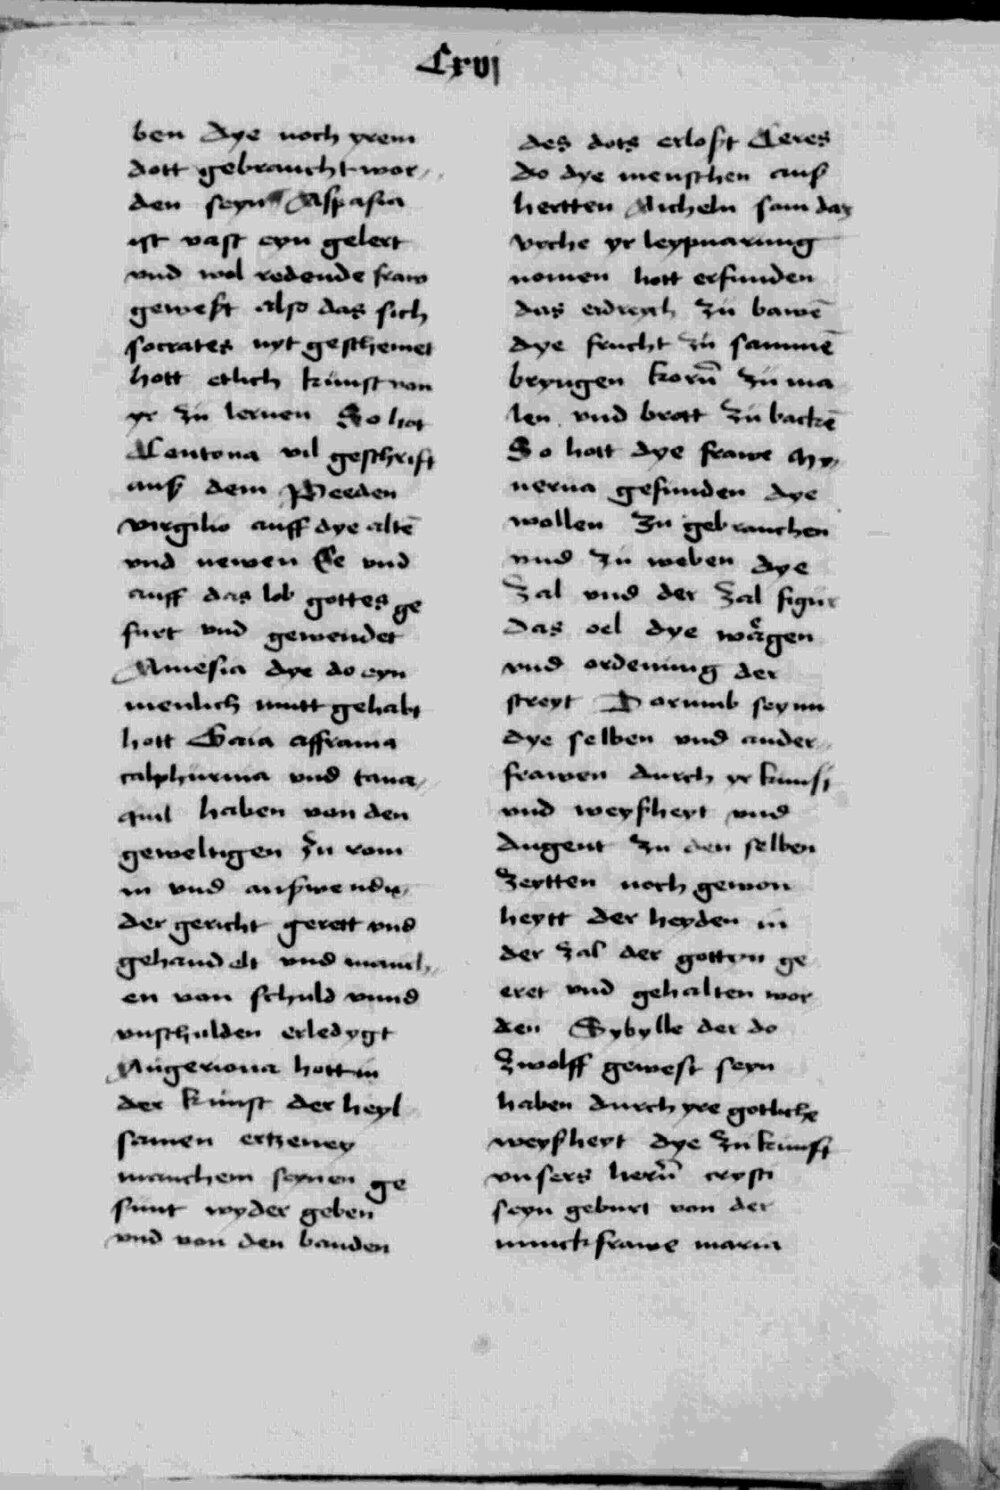 Cxvj
ben dye noch yrem
dott gebraucht wor-
den seyn Aspasia
ist vast eyn gelert
vnd wol redende fraw
gewest also das sich
socrates nyt geschemet
hott etlich kunst von
yr zu lernen So hot
Centona vil geschrift
auß dem Peeden
virgilio auff dye altē
vnd newen Ee vnd
auff das lob gottes ge
furt vnd gewendet
Amesia dye do eyn
menlich mutt gehabt
hott Gaia affrania
calphurnia vnd tana-
quil haben von den
geweltigen zu rom
in vnd außwendig
der gericht gerett vnd
gehandelt vnd manch-
en von schuld vnnd
vnschulden erledygt
Angeriona hott in
der kunst der heyl
samen ertzeney
manchem seynen ge
sunt wyder geben
vnd von den banden
des dots erlost Ceres
do dye menschen auß
hertten Aicheln sam das
vyche yr leypnarung
nomen hott erfunden
das erdreych zu bawē
dye frucht zu sammē
bryngen korn̄ zu ma
len vnd brott zu backē
So hott dye frawe My-
nerua gefunden dye
wollen zu gebrauchen
vnd zu weben dye
zal vnd der zal figur
das oel dye wägen
vnd ordenung der
streyt Dorumb seynn
dye selben vnd ander-
frawen durch yr kunst
vnd weyßheyt vnd
dugent zu den selben
zeytten noch gewon
heytt der heyden in
der zal der gottyn ge
eret vnd gehalten wor
den Sybylle der do
zwolff gewest seyn
haben durch yre gotliche
weyßheyt dye zukunft
vnsers hern̄ cristi
seyn geburt von der
iunckfrawe maria